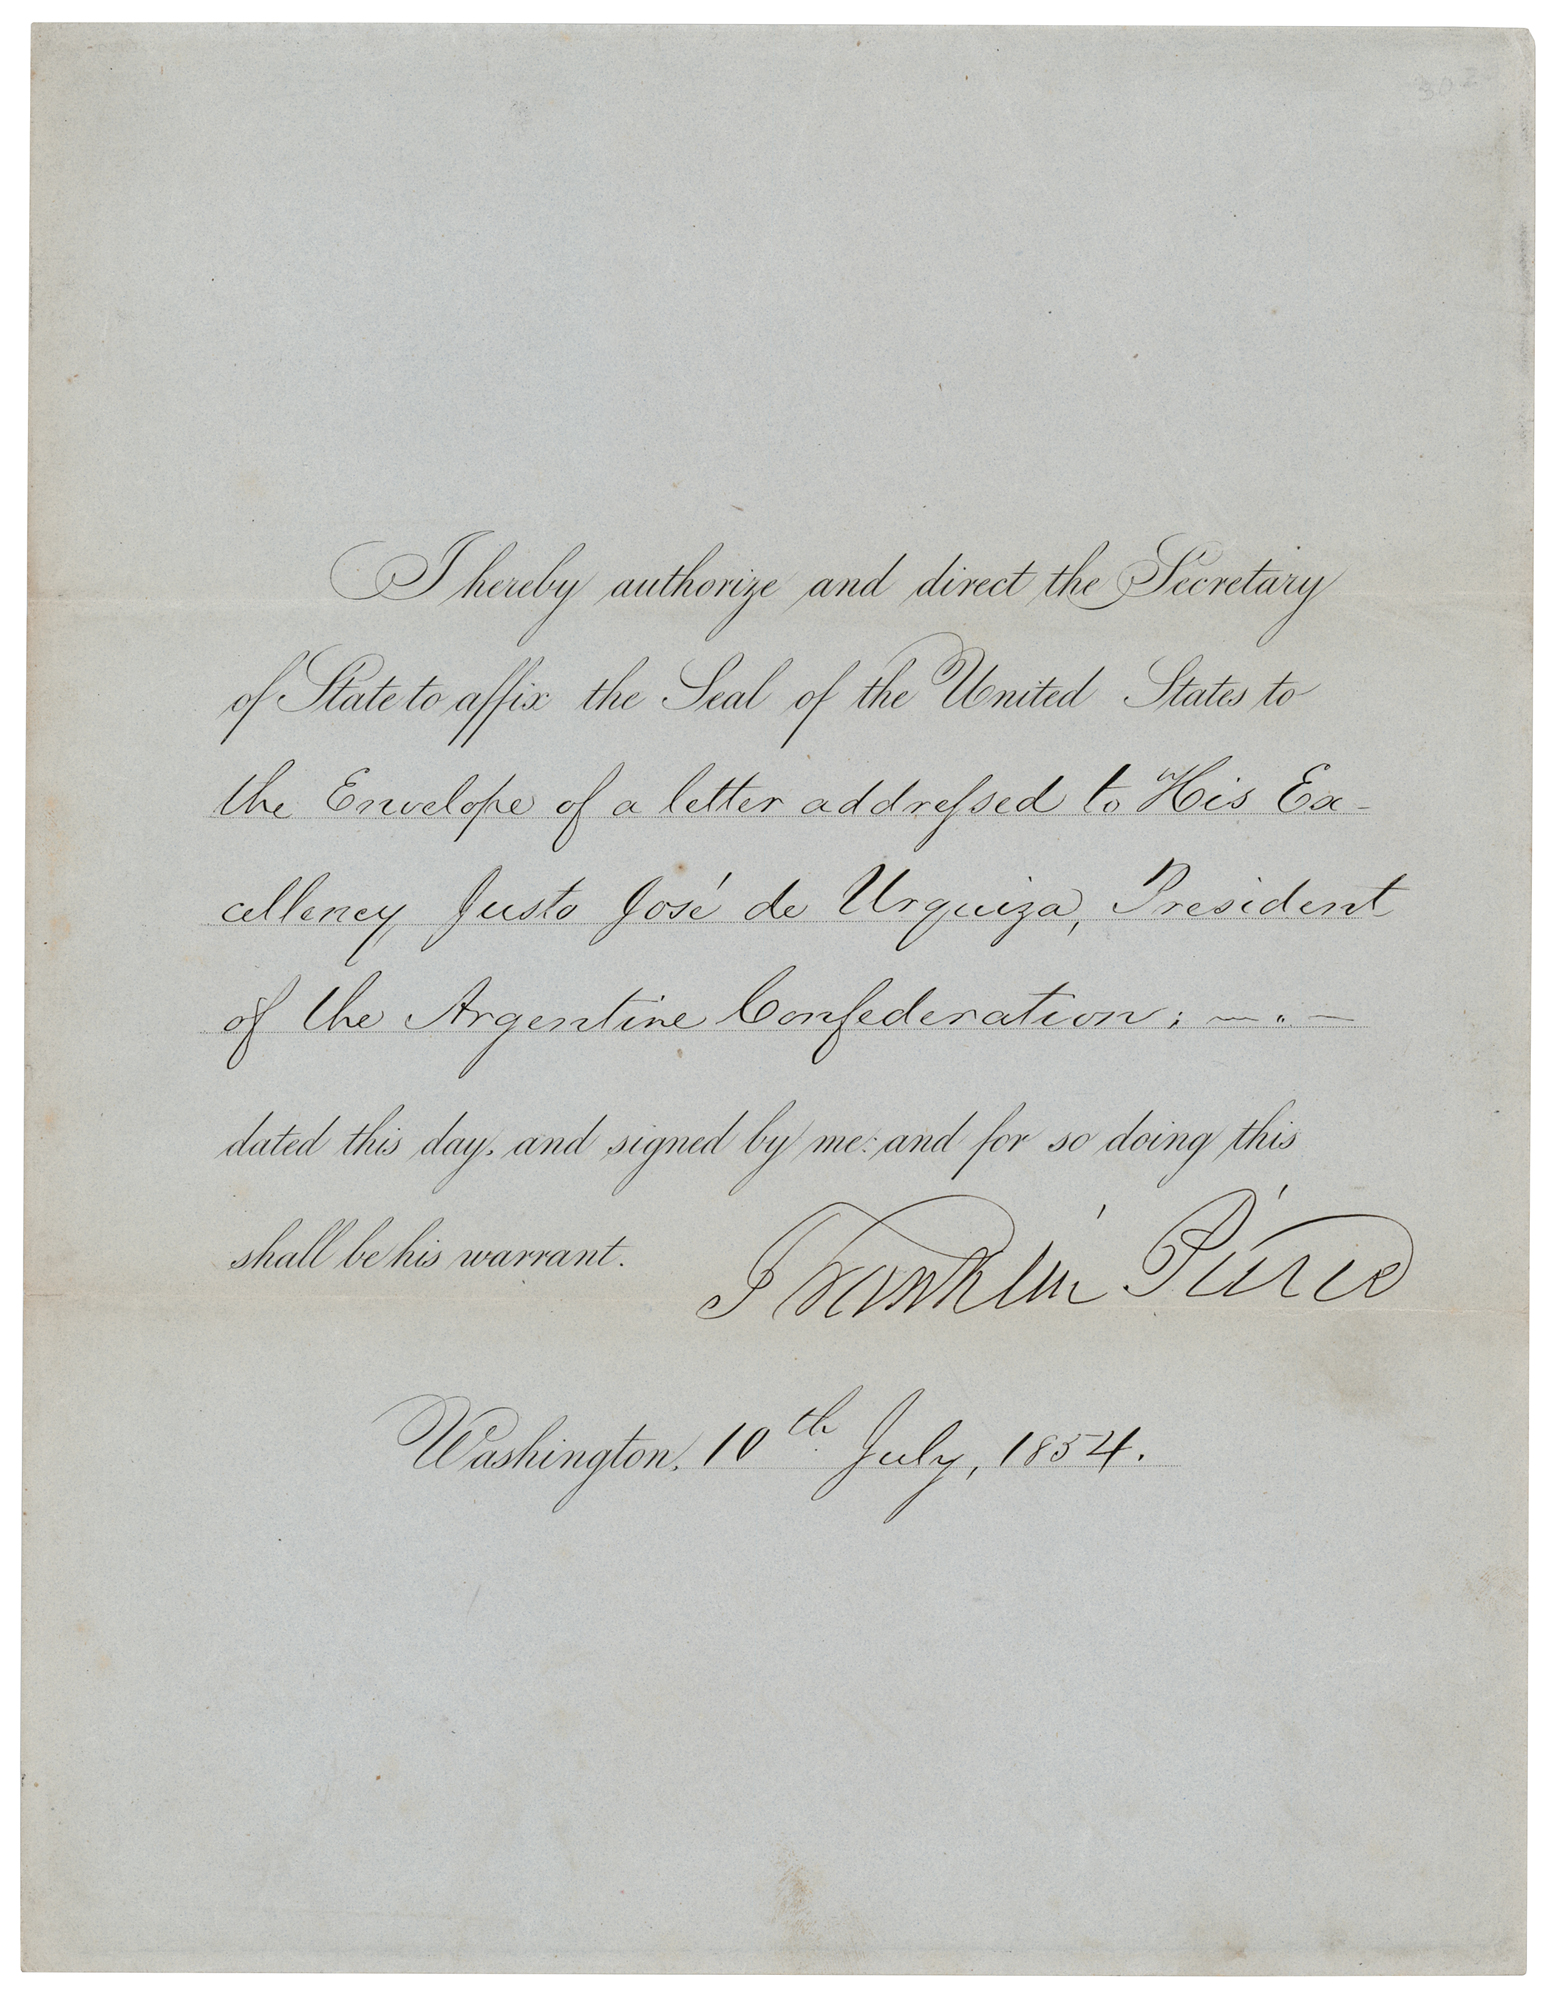 I hereby authorize and direct the Secretary
of State to affix the Seal of the United States to
the Envelope of a letter addreſsed to His Ex-
cellency, Justo José de Urquiza, President
of the Argentine Confederation; — „ —
dated this day, and signed by me: and for so doing this
shall be his warrant.
Franklin Pierce
Washington, 10th July, 1854.